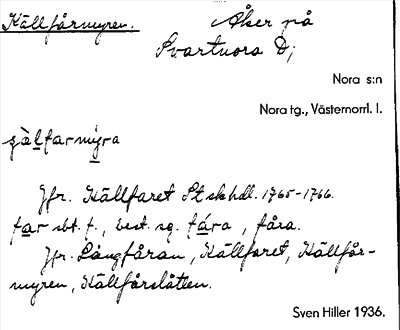 Källfårmyren.
Åker på
Svartnora D;
Nora s:n
Nora tg., Västernorrl. l.
sjàlfarmýra
Jfr. Källfaret St skhdl. 1765-1766.
far sbt. f., best. sg. fára, fåra.
Jfr. Långfåran, Källfaret, Källfår-
myren, Källfårslåtten.
Sven Hiller 1936.